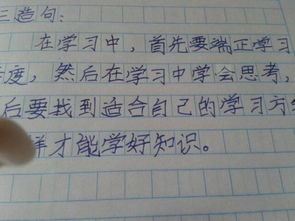 三造句:
在学习中，首先要端正学习
度，然后在学习中学会思考，
后要找到适合自己的学习方
样才能学好知识。